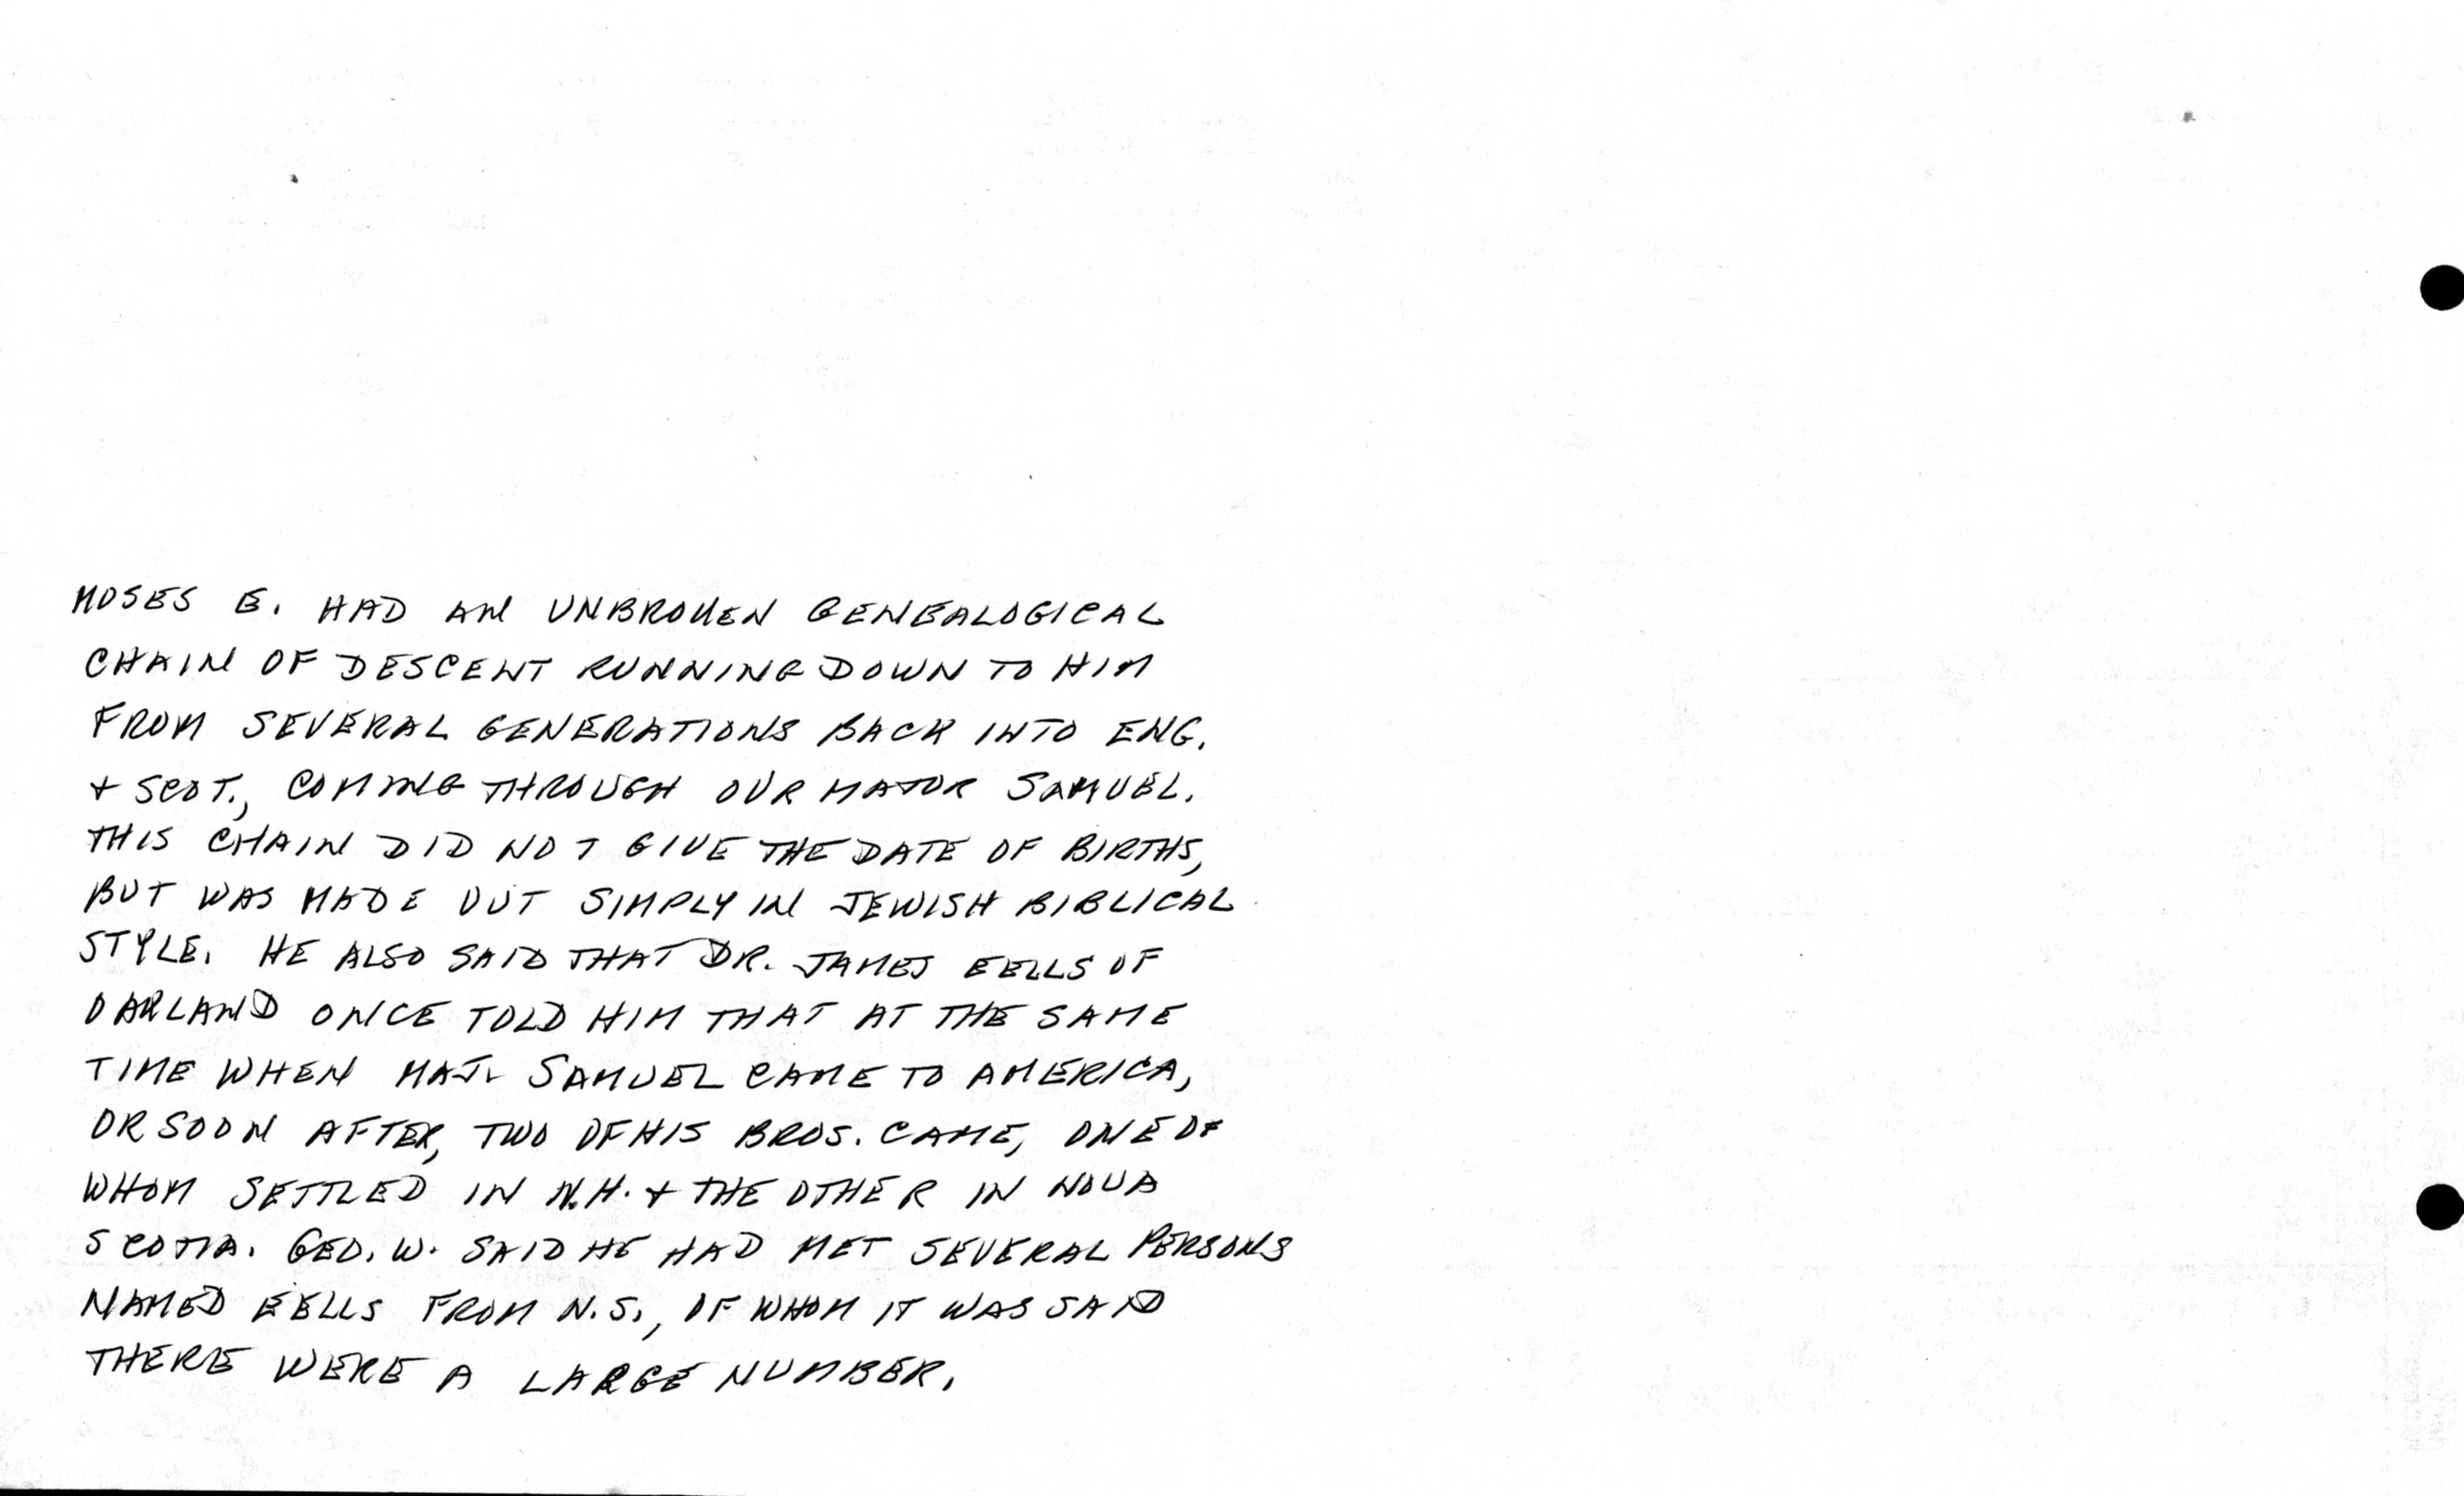 MOSES E. HAD AN UNBROKEN GENEALOGICAL
CHAIN OF DESCENT RUNNING DOWN TO HIM
FROM SEVERAL GENERATIONS BACK INTO ENG.
+ SCOT., COMING THROUGH OUR MAJOR SAMUEL.
THIS CHAIN DID NOT GIVE THE DATE OF BIRTHS,
BUT WAS MADE OUT SIMPLY IN JEWISH BIBLICAL
STYLE. HE ALSO SAID THAT DR. JAMES EELLS OF
OAKLAND ONCE TOLD HIM THAT AT THE SAME
TIME WHEN MAJ. SAMUEL CAME TO AMERICA,
OR SOON AFTER, TWO OF HIS BROS. CAME, ONE OF
WHOM SETTLED IN N.H. + THE OTHER IN NOVA
SCOTIA. GEO. W. SAID HE HAD MET SEVERAL PERSONS
NAMED EELLS FROM N.S., OF WHOM IT WAS SAID
THERE WERE A LARGE NUMBER.